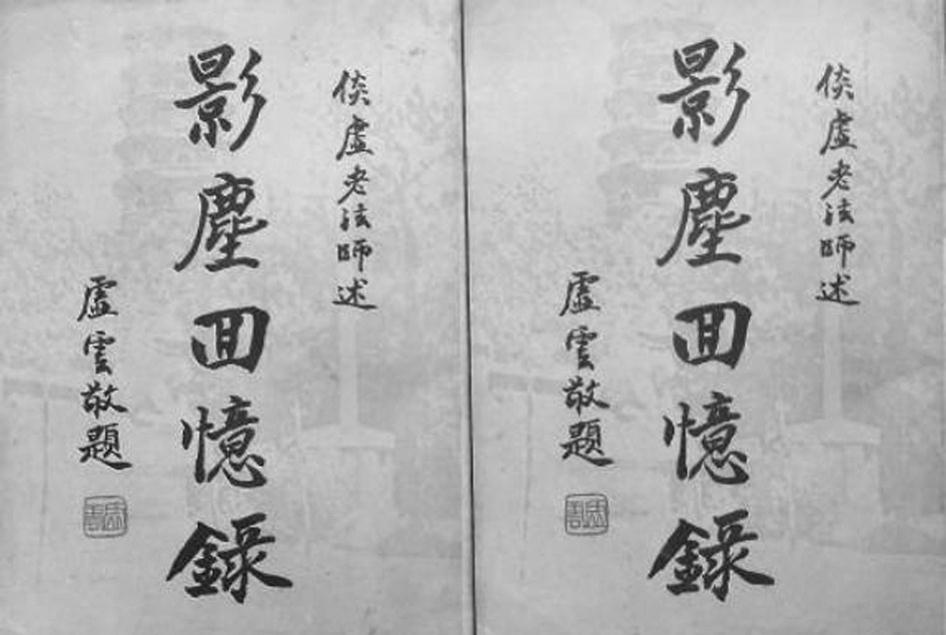 倓虛老法師述
影塵回憶錄
虛雲敬題
倓虛老法師述
影塵回憶錄
虛雲敬題